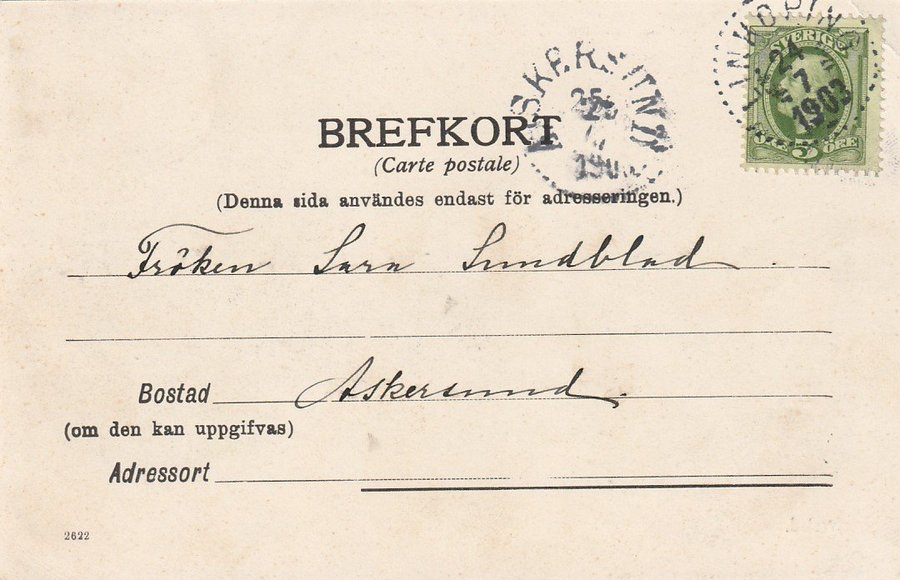 BREFKORT
(Carte postale)
(Denna sida användes endast för adresseringen.)
ASKERSUND
25
7
LINKÖPING
24
7
1903
SVERIGE
5 ÖRE
Fröken Sara Sundblad
Bostad Askersund
(om den kan uppgifvas)
Adressort
2622